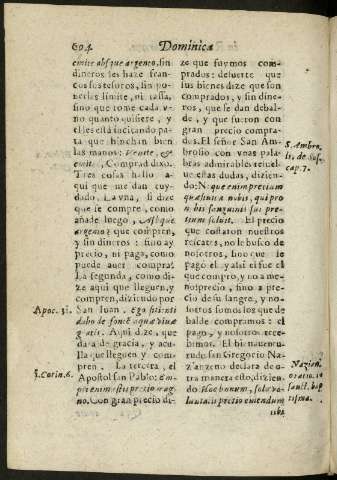 604 Dominica
emite absque argento, sin
dineros les haze fran-
cos sus tesoros, sin po-
nerles limite, ni tassa,
sino que tome cada v-
no quanto quisiere, y
el les està incitando pa-
ta que hinchan bien
las manos: Venite, &
emite, Comprad dixo.
Tres cosas hallo a-
qui que me dan cuy-
dado. La vna, si dize
que se compre, como
añade luego, Absque
argento? que compren,
y sin dineros: sino ay
precio, ni paga, como
puede auer compra?
La segunda, como di-
ze aqui que lleguen, y
compren, diziendo por
Apoc. 21. San Iuan. Ego sitienti
dabo de fonte aquæ viuæ
gratis. Aqui dize, que
dara de gracia, y acu-
lla que lleguen y com-
pren. La tercera, el
1. Corin. 6. Apostol san Pablo: Em-
pti enim estis pretio mag-
no. Con gran precio di-
ze que fuymos com-
prados: desuerte que
sus bienes dize que son
comprados, y sin dine-
ros, que se dan debal-
de, y que fueron con
gran precio compra-
dos. El señor San Am-
S. Ambro.
brosio con vnas pala-
bras admirables resuel-
ue estas dudas, dizien-
cap. 7.
do: N: que enim pretium
quæsiuit a nobis, qui pro
nobis sanguinis sui pre-
tium soluit. El precio
que costaron nuestros
rescates, no le busco de
nosotros, hoo que le
pago el. y assi si fue el
que compro, y ro a me-
no: precio, sino a pre-
cio de su sangre, y no-
sotros somos los que de
balde compramos: el
pago, y nosotros rece-
bimos. El bienauentu-
rado san Gregorio Na-
Nazian.
z'anzeno declara de o-
oratio. in
tra manera esto, dizien-
sanct. bap
do Hoc bonum, sola vo-
tisma.
luntatis pretio emendum